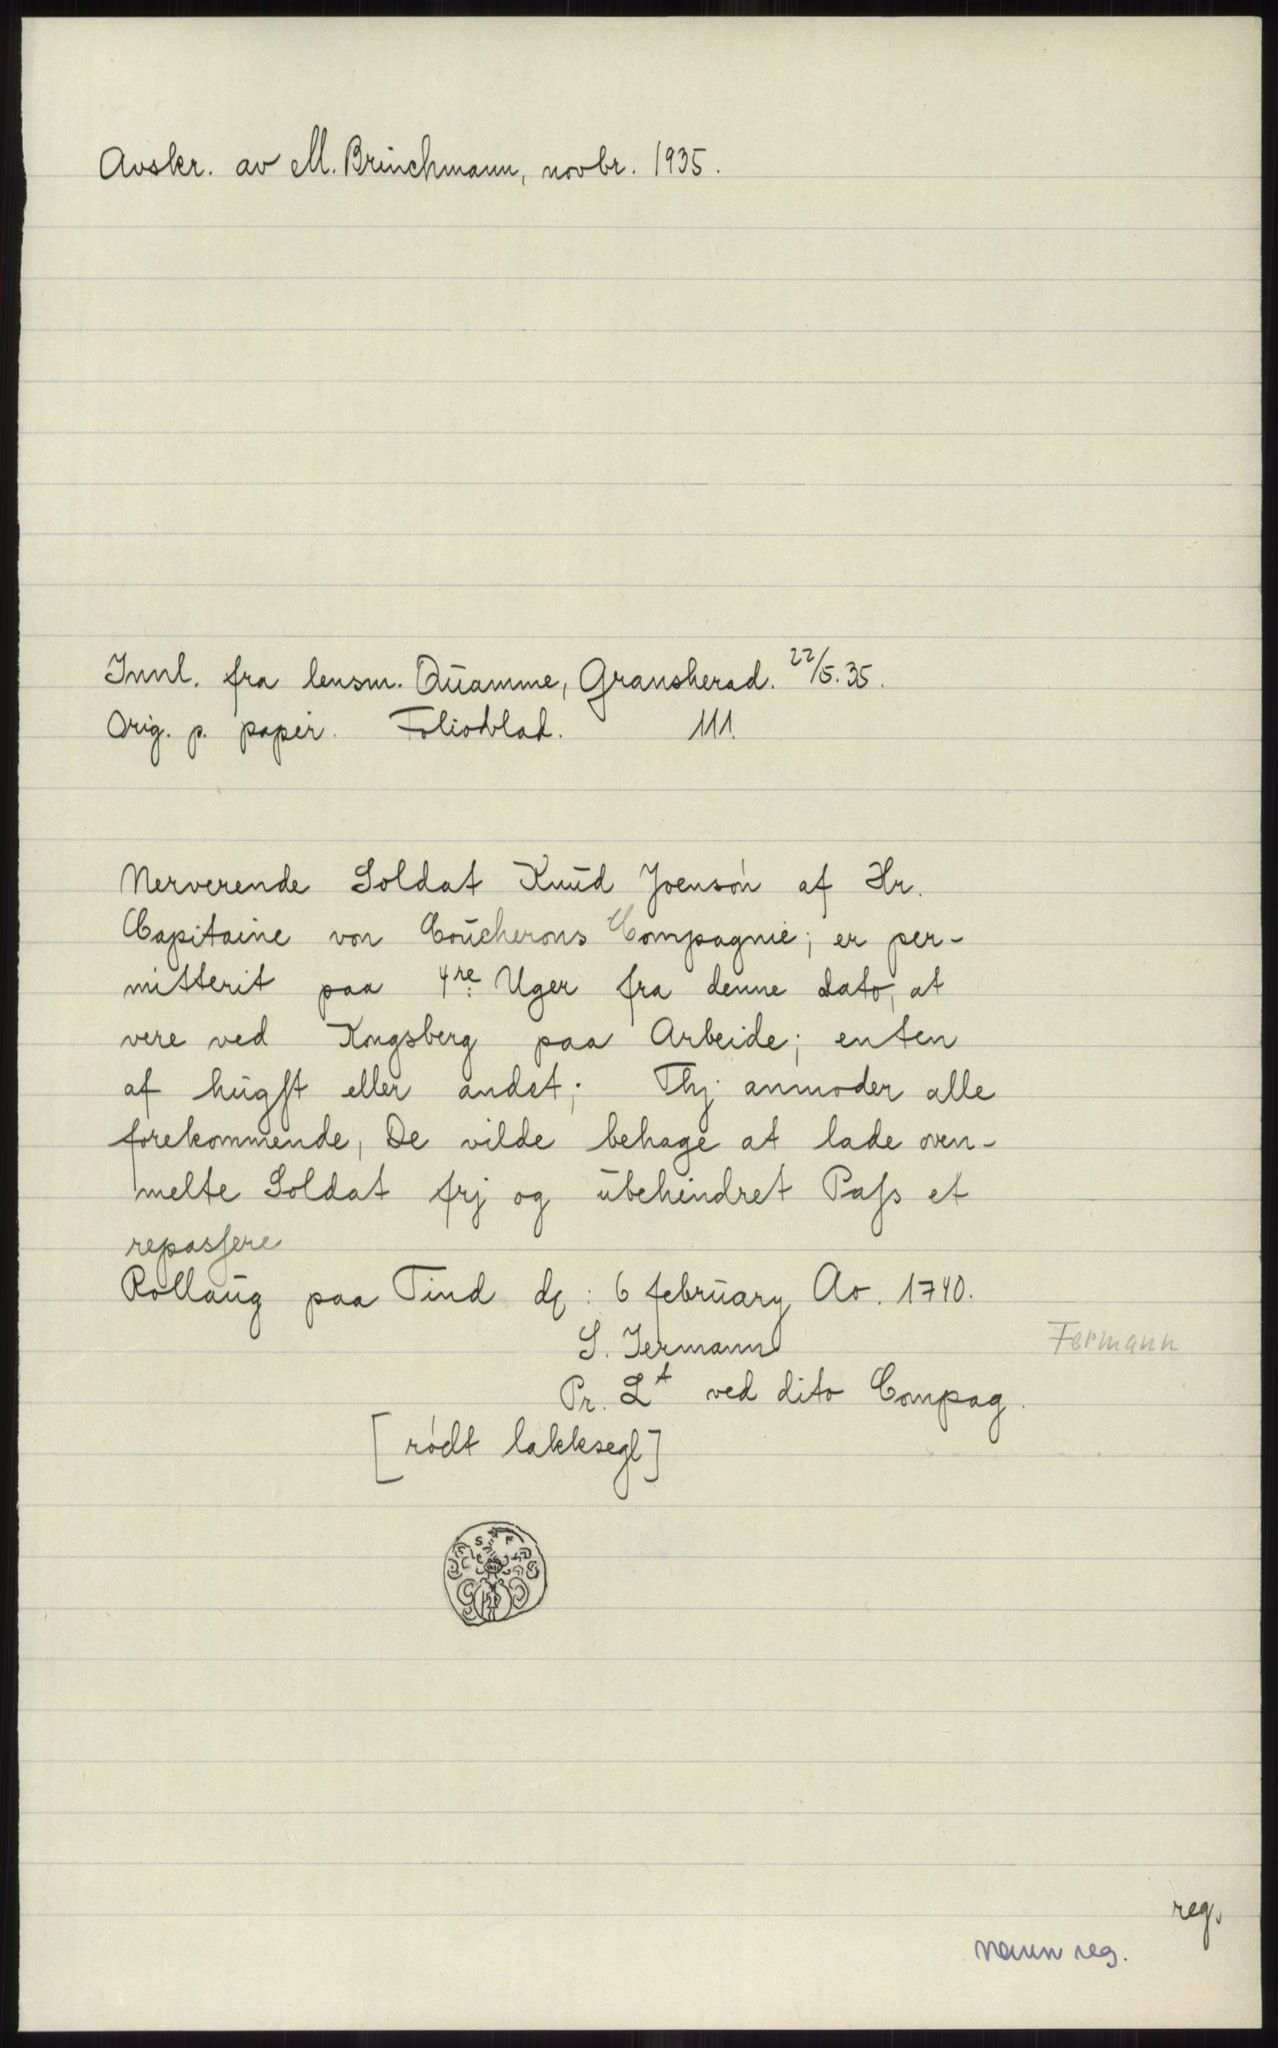 Avskr. av M. Brinchmann, novbr. 1935.
Innl. fra lensm. Qŭamme, Gransherad. 22/5.35.
Orig. p. papir. Folioblad. 111.
Nerverende Soldat Knŭd Joensøn af Hr.
Capitaine von Coŭcherons Compagnie; er per-
mitterit paa 4re Uger fra denne dato, at
vere ved Kongsberg paa Arbeide; enten
af hŭgst eller andet; Thj anmoder alle
forekommende, De vilde behage at lade oven-
melte Soldat frj og ŭbehindret Pass et
repassere
Rollaŭg paa Tind d: 6 febrŭary Ao. 1740.
S. Fermann Fermann
Pr. Lt ved dito Compag.
[rødt lakksegl]
S F
reg.
Navn reg.